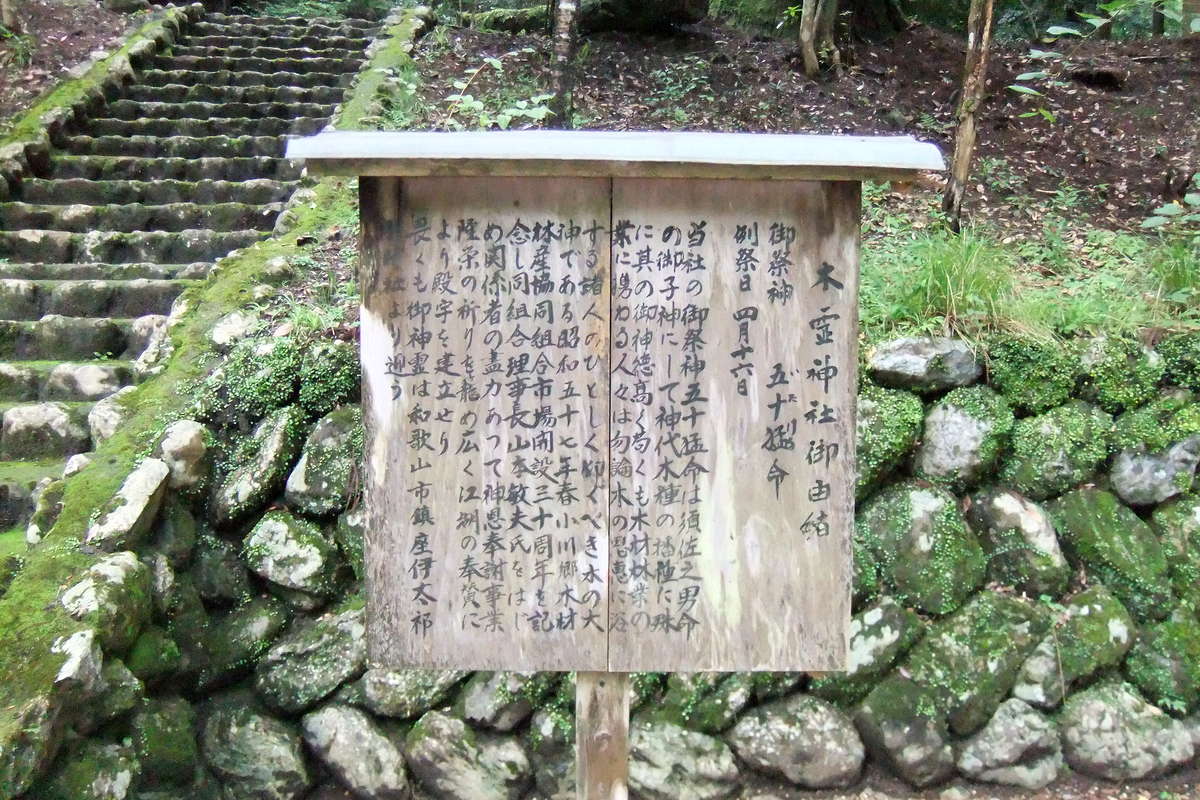 木霊神社御由緒
御祭神 五十猛命
た
例祭日 四月十六日
当社の御祭神五十猛命は須佐之男命
の御子神にして神代木種の播種に殊
に其の御神徳高く苟くも木材林業の
業に携わる人々は勿論木の恩恵に浴
する諸人のひとしく仰ぐべき木の大
神である昭和五十七年春小川郷木材
林産協同組合市場開設三十周年を記
念し同組合理事長山本敏夫氏をはじ
め関係者の盡力あって神恩奉謝事業
隆栄の祈りを籠め広く江湖の奉賛に
より殿宇を建立せり
畏くも御神霊は和歌山市鎮座伊太祁
神社より迎う